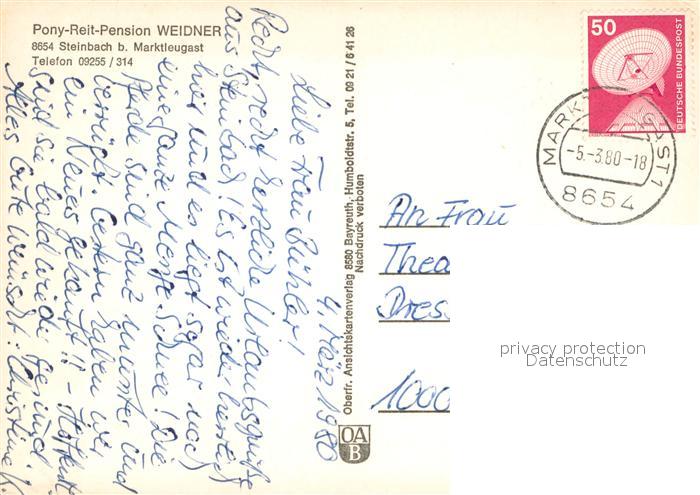 Pony-Reit-Pension WEIDNER
8654 Steinbach b. Marktleugast
Telefon 09255 / 314
4. März 1980
Liebe Frau Bühler!
Recht, recht herzliche Urlaubsgrüße
aus Steinbach! Es ist wieder herrlich
hier und es liegt sogar noch
eine ganze Menge Schnee! Die
Pferde sind ganz munter und
verrückt. Gestern haben wir
ein Neues gekauft!! - Hoffentl.
sind sie bald wieder gesund.
Alles Gute wünscht: Christine K.
Oberfr. Ansichtskartenverlag 8580 Bayreuth, Humboldtstr. 5, Tel. 09 21 / 6 41 26
Nachdruck verboten
OA
B
50
DEUTSCHE BUNDESPOST
MARK ST 1
-5.-3.80-18
8654
An Frau
Thea
Dres
1000
privacy protection
Datenschutz